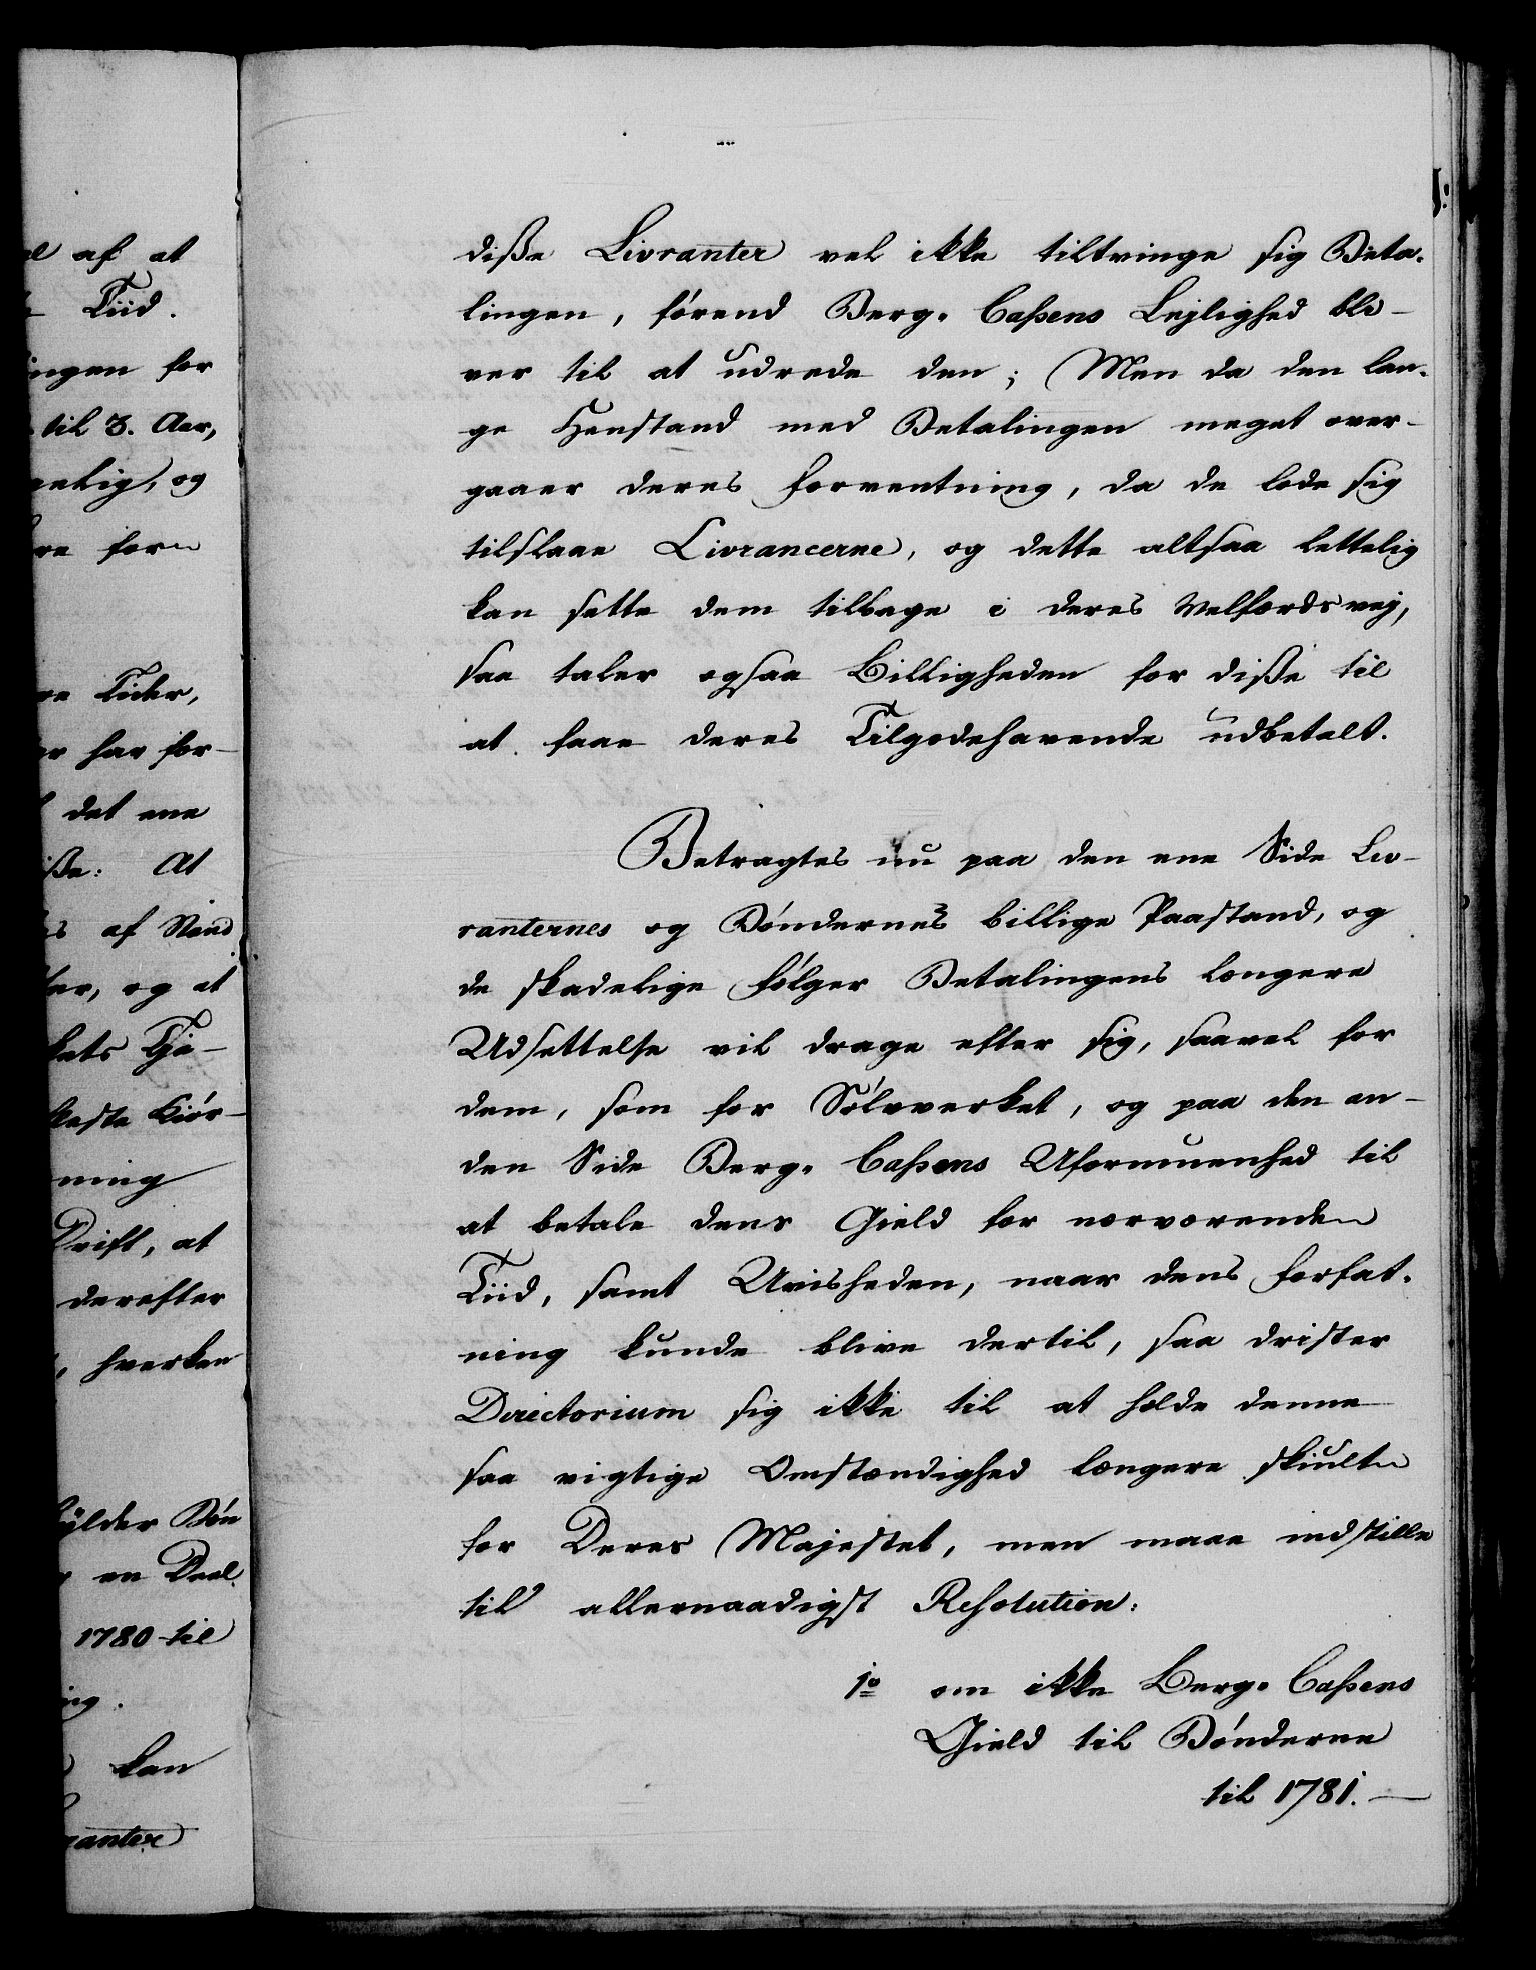 diße Livranter vel ikke tiltvinge sig Beta-
lingen, førend Berg-Caßens Lejlighed bli-
ver til at udrede den; Men da den lan-
ge Henstand med Betalingen meget over-
gaaer deres Forventning, da de lode sig
tilslaae Livrancerne, og dette altsaa lettelig
kan sætte dem tilbage i deres Velfærds vej,
saa taler ogsaa Billigheden for diße til
at faae deres Tilgodehavende udbetalt.
Betragtes nu paa den ene Side Liv-
ranternes og Bøndernes billige Paastand, og
de skadelige Følger Betalingens længere
Udsættelse vil drage efter sig, saavel for
dem, som for Sølvverket, og paa den an-
den Side Berg-Caßens Uformuenhed til
at betale dens Gield for nærværende
Tiid, samt Uvisheden, naar dens Forfat-
ning kunde blive dertil, saa drister
Directorium sig ikke til at holde denne
saa vigtige Omstændighed længere skiult
for Deres Majestet, men maae indstille
til allernaadigst Resolution:
1o om ikke Berg-Caßens
Gield til Bønderne
til 1781.
af at
Tiid.
ingen for
til 3. Aar,
og
for
Tider,
har for-
det ene
At
af
og at
ning
Drift, at
derefter
hverken
en Deel
1780 til
kan
ranter